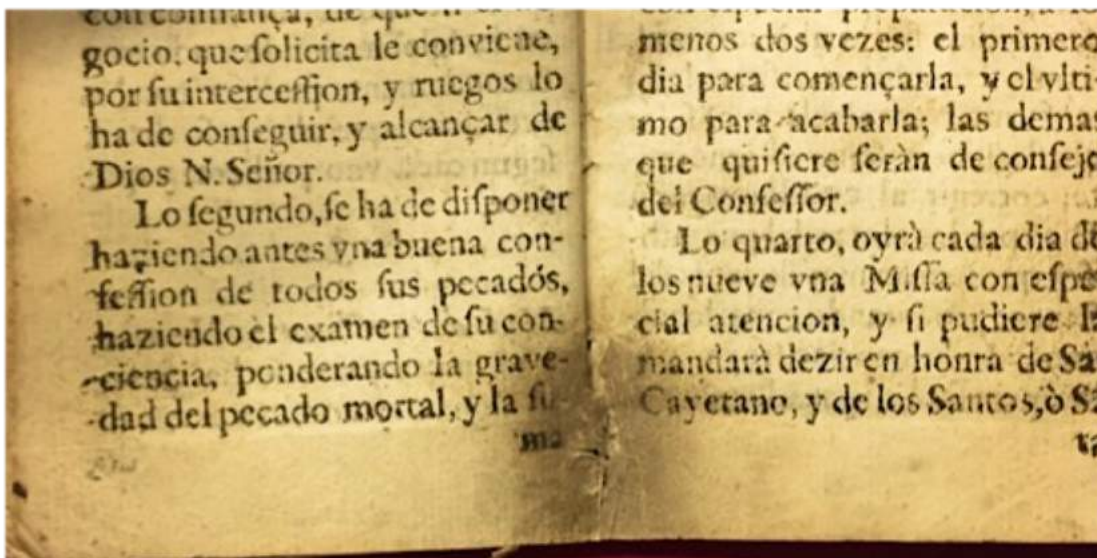 con confiança, de que
gocio, que ſolicita le conviene,
por ſu interceſſion, y ruegos lo
ha de conſeguir, y alcançar de
Dios N. Señor.
Lo ſegundo, ſe ha de diſponer
haziendo antes vna buena con-
feſſion de todos ſus pecados,
haziendo el examen de ſu con-
ciencia, ponderando la grave-
dad del pecado mortal, y la ſu-
ma
con eſpecial preparacion, a lo
menos dos vezes: el primero
dia para començarla, y el vlti-
mo para acabarla; las demas
que quiſiere ſeràn de conſejo
del Confeſſor.
Lo quarto, oyrà cada dia de
los nueve vna Miſſa con eſpe-
cial atencion, y ſi pudiere la
mandarà dezir en honra de Sa
Cayetano, y de los Santos, ò Sa
ta